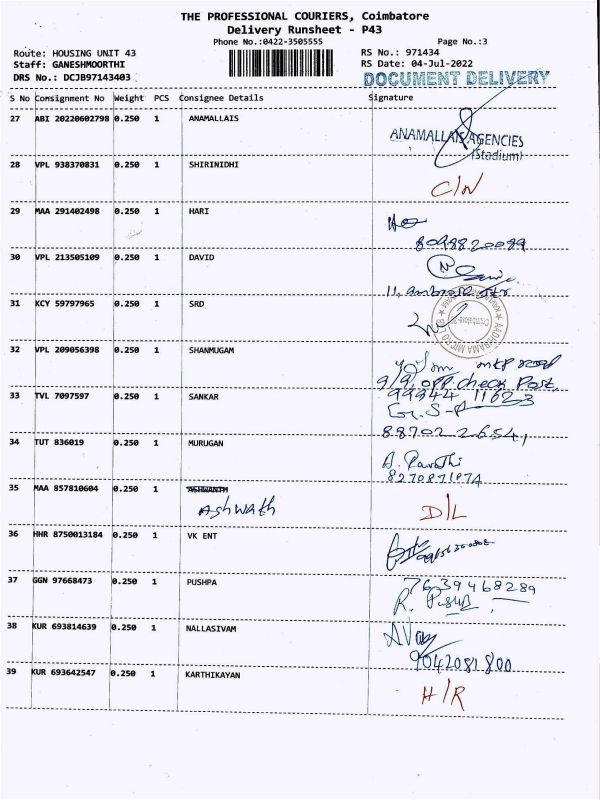 THE PROFESSIONAL COURIERS, Coimbatore
Delivery Runsheet - P43
Phone No.:0422-3505555
Page No.:3
Route: HOUSING UNIT 43
RS No.: 971434
Staff: GANESHMOORTHI
RS Date: 04-Jul-2022
DRS No.: DCJB97143403
DOCUMENT DELIVERY
S No Consignment No Weight PCS Consignee Details Signature
27 ABI 20220602798 0.250 1 ANAMALLAIS
ANAMALLAIS AGENCIES
(Stadium)
28 VPL 938370831 0.250 1 SHIRINIDHI
C/N
29 MAA 291402498 0.250 1 HARI
30 VPL 213505109 0.250 1 DAVID
31 KCY 59797965 0.250 1 SRD
32 VPL 209056398 0.250 1 SHANMUGAM
9/9, opp. check Post,
33 TVL 7097597 0.250 1 SANKAR
99944 11623
34 TUT 836019 0.250 1 MURUGAN
8270871074
35 MAA 857810604 0.250 1 ASHWANTH
Ashwath
D/L
36 HHR 8750013184 0.250 1 VK ENT
37 GGN 97668473 0.250 1 PUSHPA
7639468289
38 KUR 693814639 0.250 1 NALLASIVAM
9042081800
39 KUR 693642547 0.250 1 KARTHIKAYAN
H/R